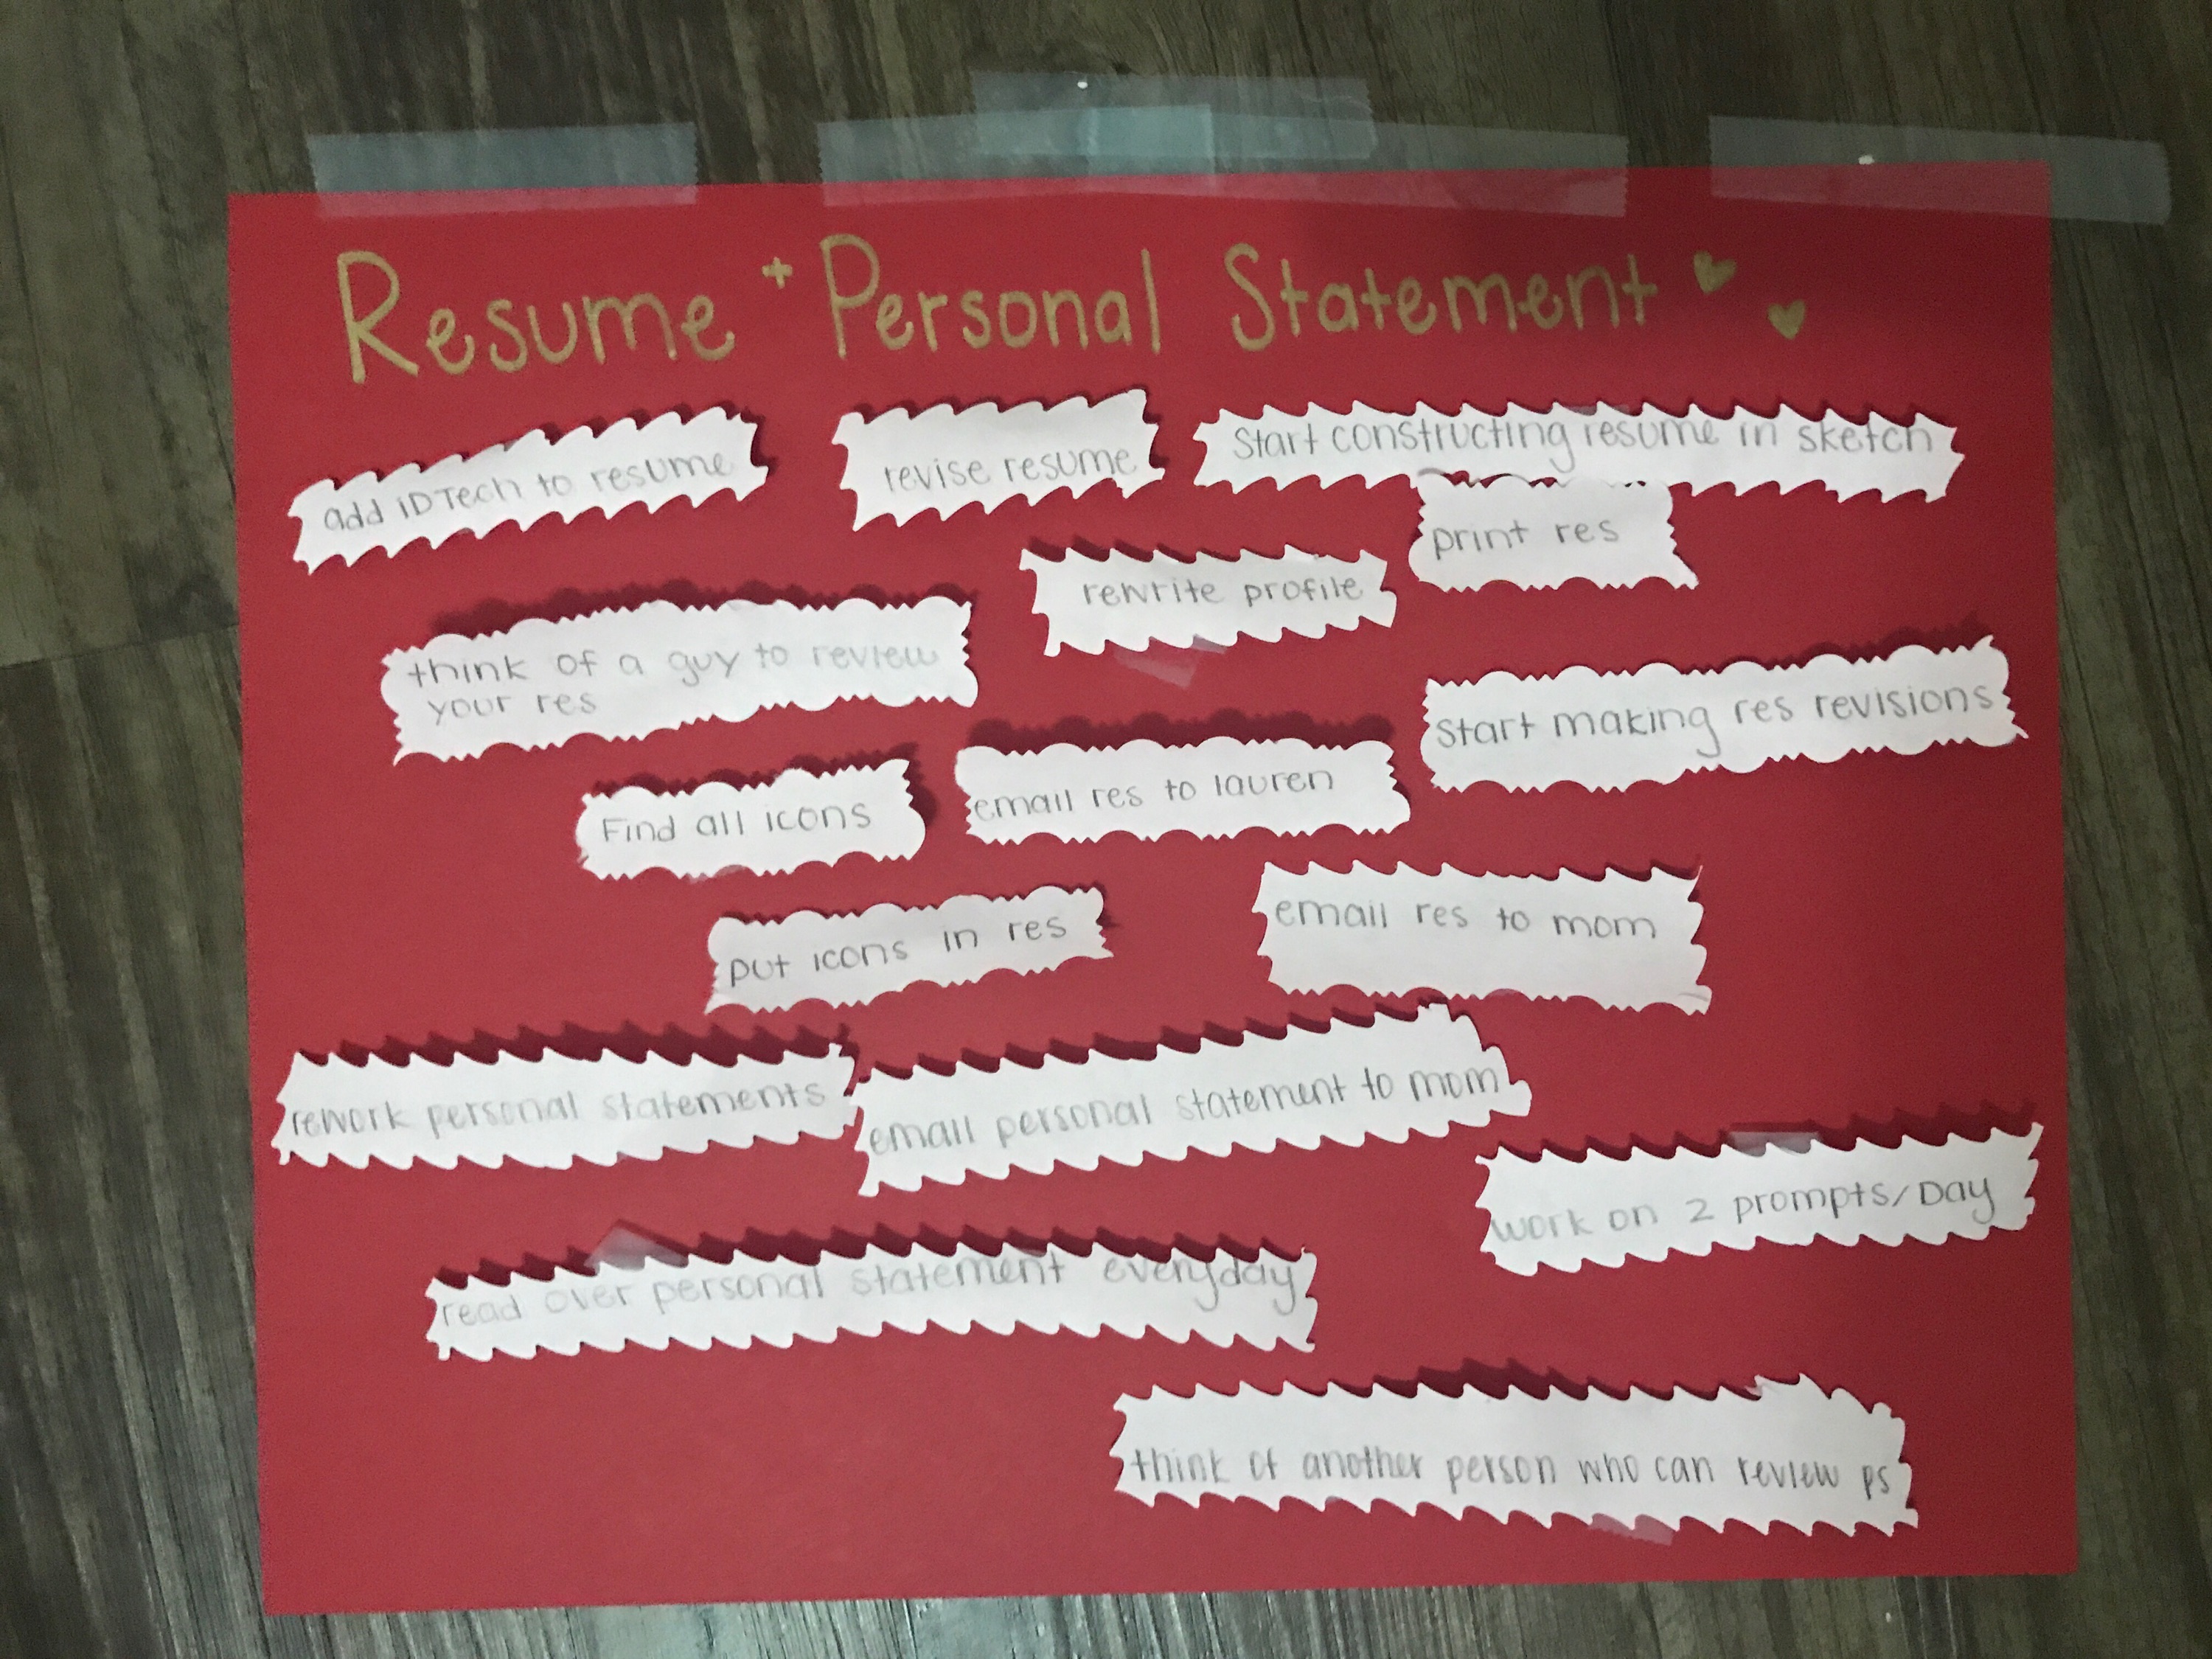 Resume + Personal Statement
add iDTech to resume
revise resume
Start constructing resume in sketch
print res
rewrite profile
think of a guy to review
your res
Start making res revisions
Find all icons
email res to lauren
put icons in res
email res to mom
rework personal statements
email personal statement to mom
work on 2 prompts/Day
read over personal statement everyday
think of another person who can review ps